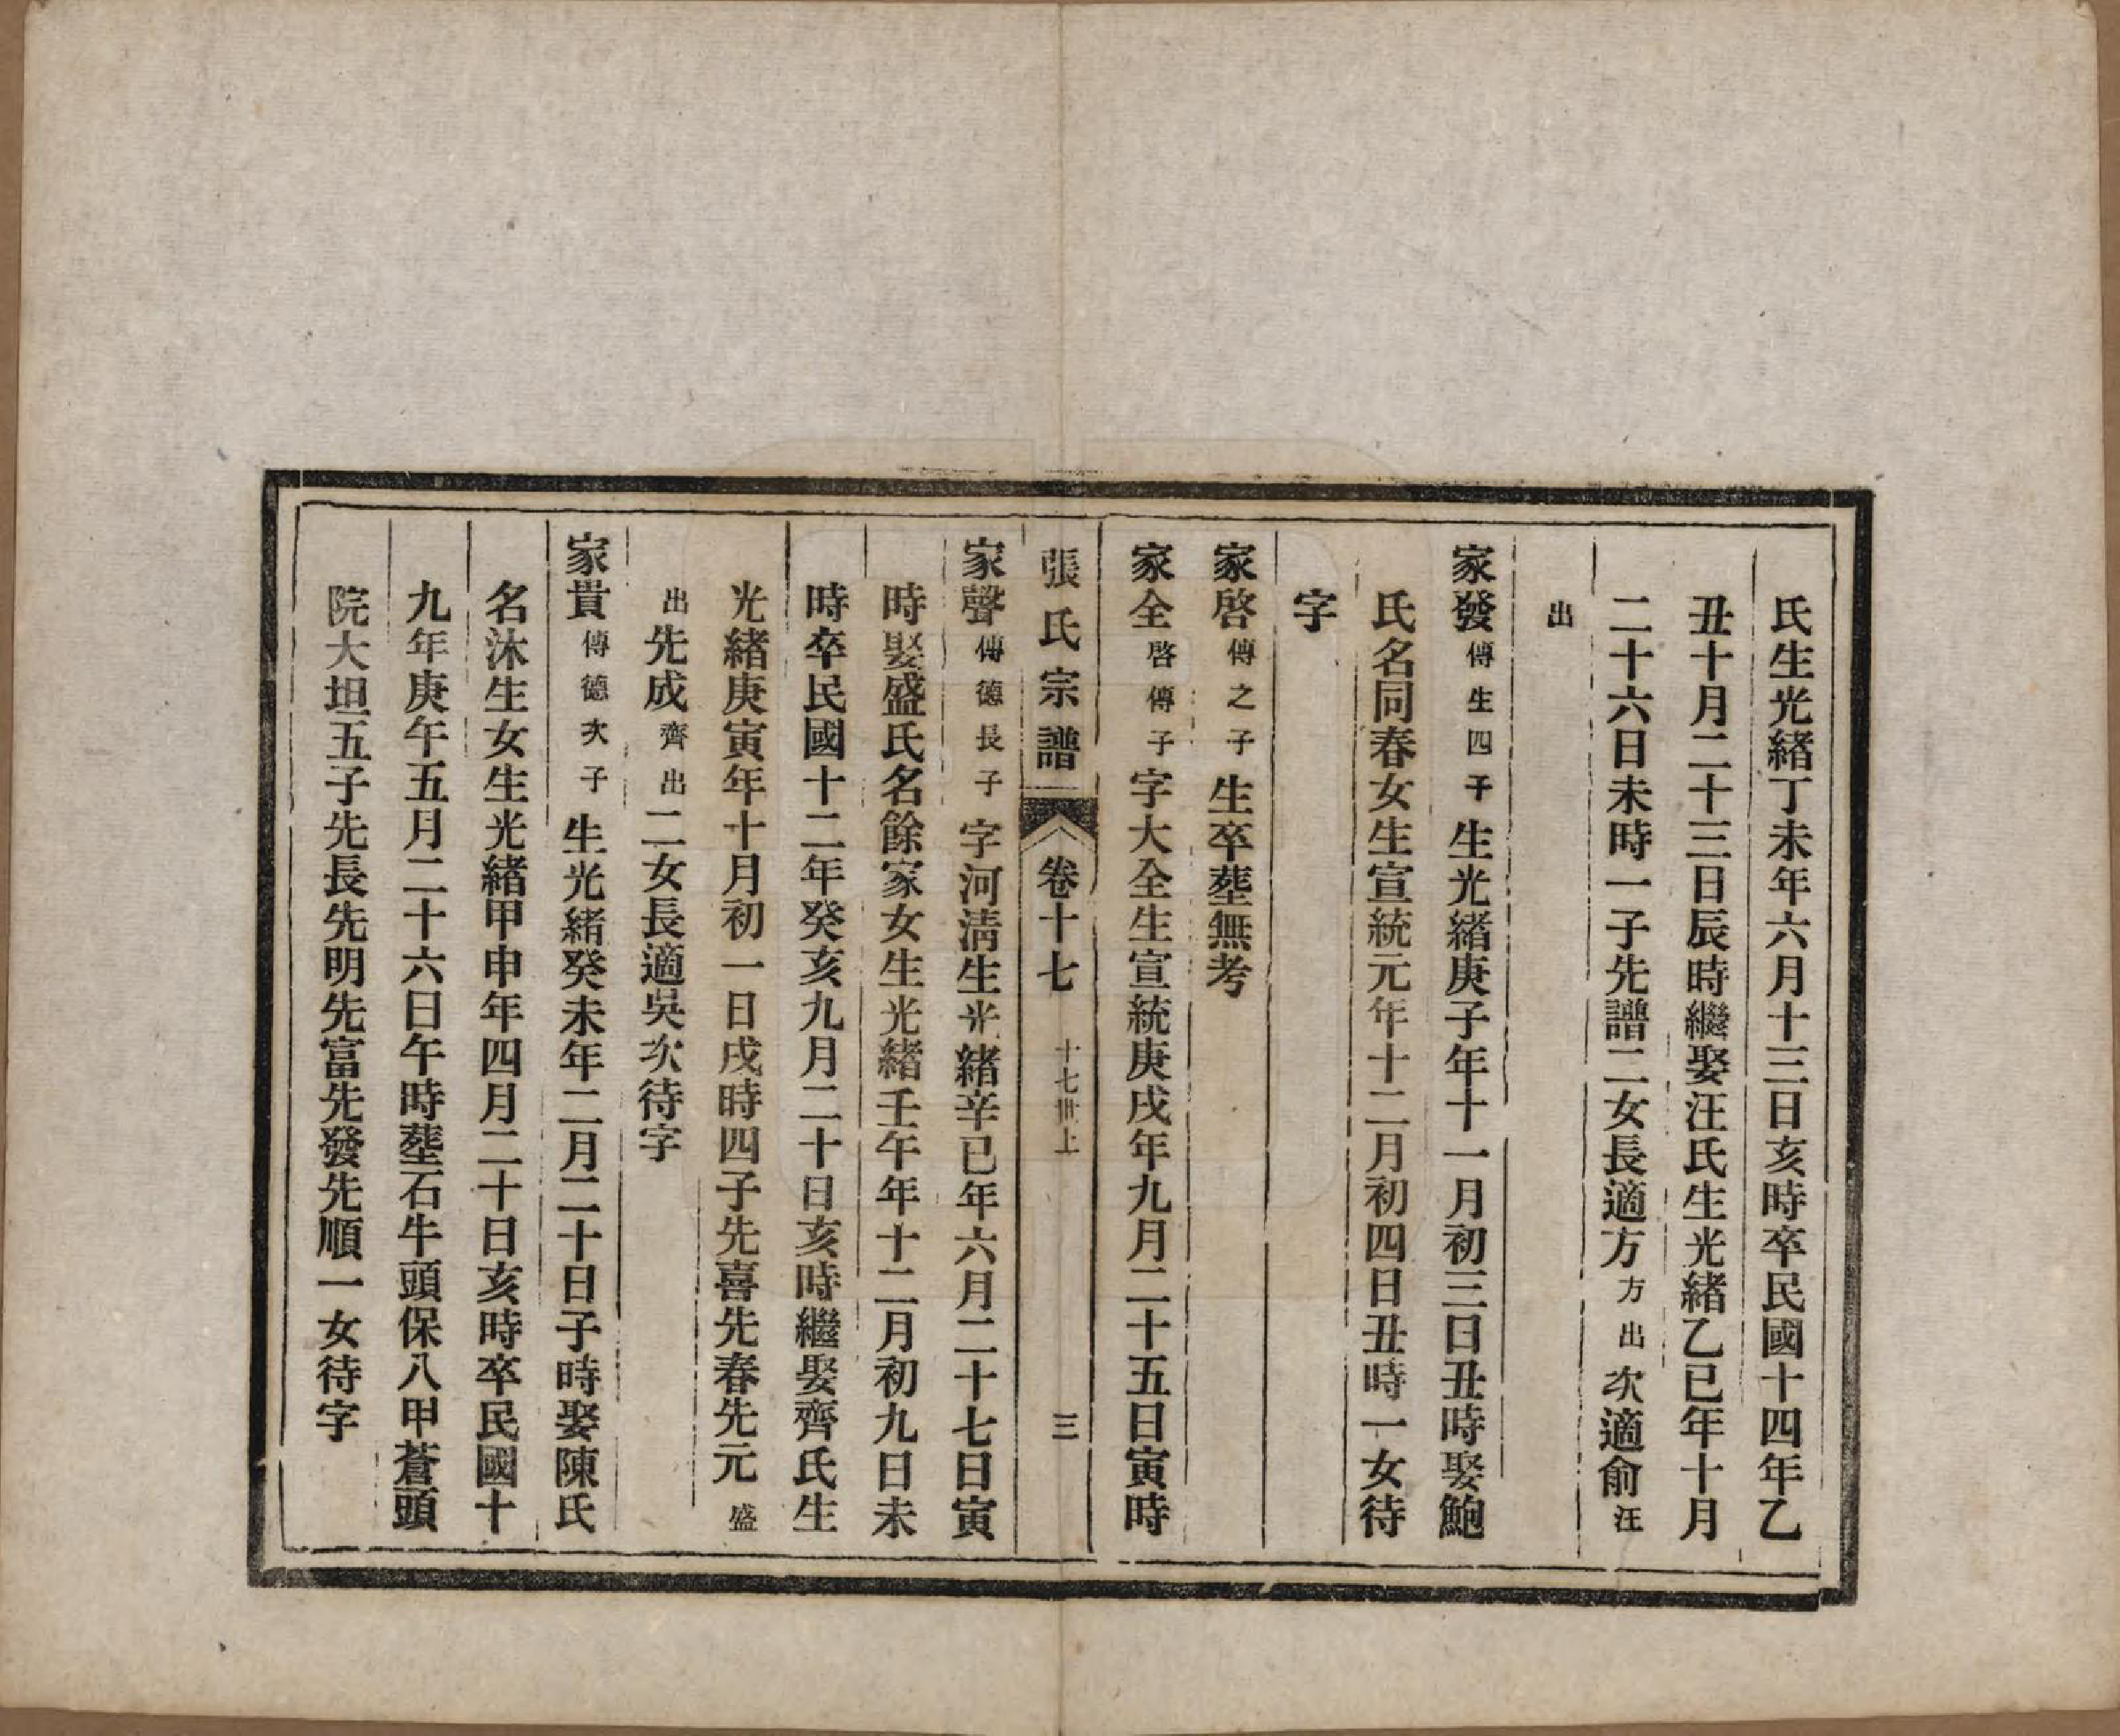 氏生光緒丁未年六月十三日亥時卒民國十四年乙
丑十月二十三日辰時繼娶汪氏生光緒乙巳年十月
二十六日未時一子先譜二女長適方方出次適俞汪
出
家發傳生四子生光緒庚子年十一月初三日丑時娶鮑
氏名同春女生宣統元年十二月初四日丑時一女待
字
家啓傳之子生卒塟無考
家全啓傳子字大全生宣統庚戌年九月二十五日寅時
張氏宗譜 卷十七 十七世上 三
家聲傳德長子字河淸生光緒辛巳年六月二十七日寅
時娶盛氏名餘家女生光緒壬午年十二月初九日未
時卒民國十二年癸亥九月二十日亥時繼娶齊氏生
光緒庚寅年十月初一日戌時四子先喜先春先元盛
出先成齊出二女長適吳次待字
家貴傳德次子生光緒癸未年二月二十日子時娶陳氏
名沐生女生光緒甲申年四月二十日亥時卒民國十
九年庚午五月二十六日午時塟石牛頭保八甲蒼頭
院大坦五子先長先明先富先發先順一女待字